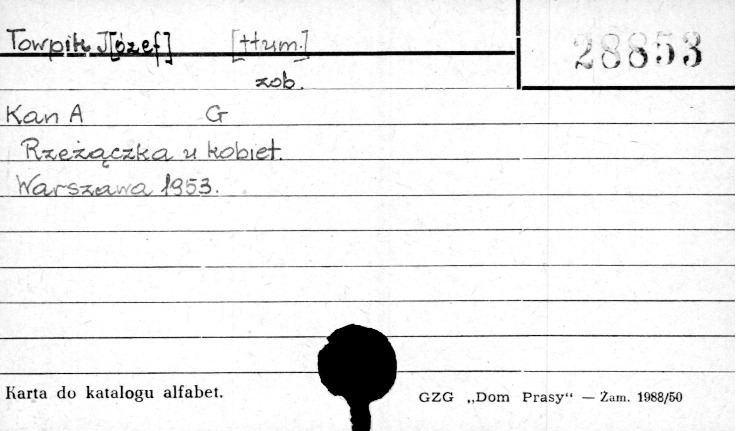 Towpik J[ózef] [tłum.]
28853
zob.
Kan A G
Rzeżączka u kobiet.
Warszawa 1953.
Karta do katalogu alfabet.
GZG „Dom Prasy“ — Zam. 1988/50